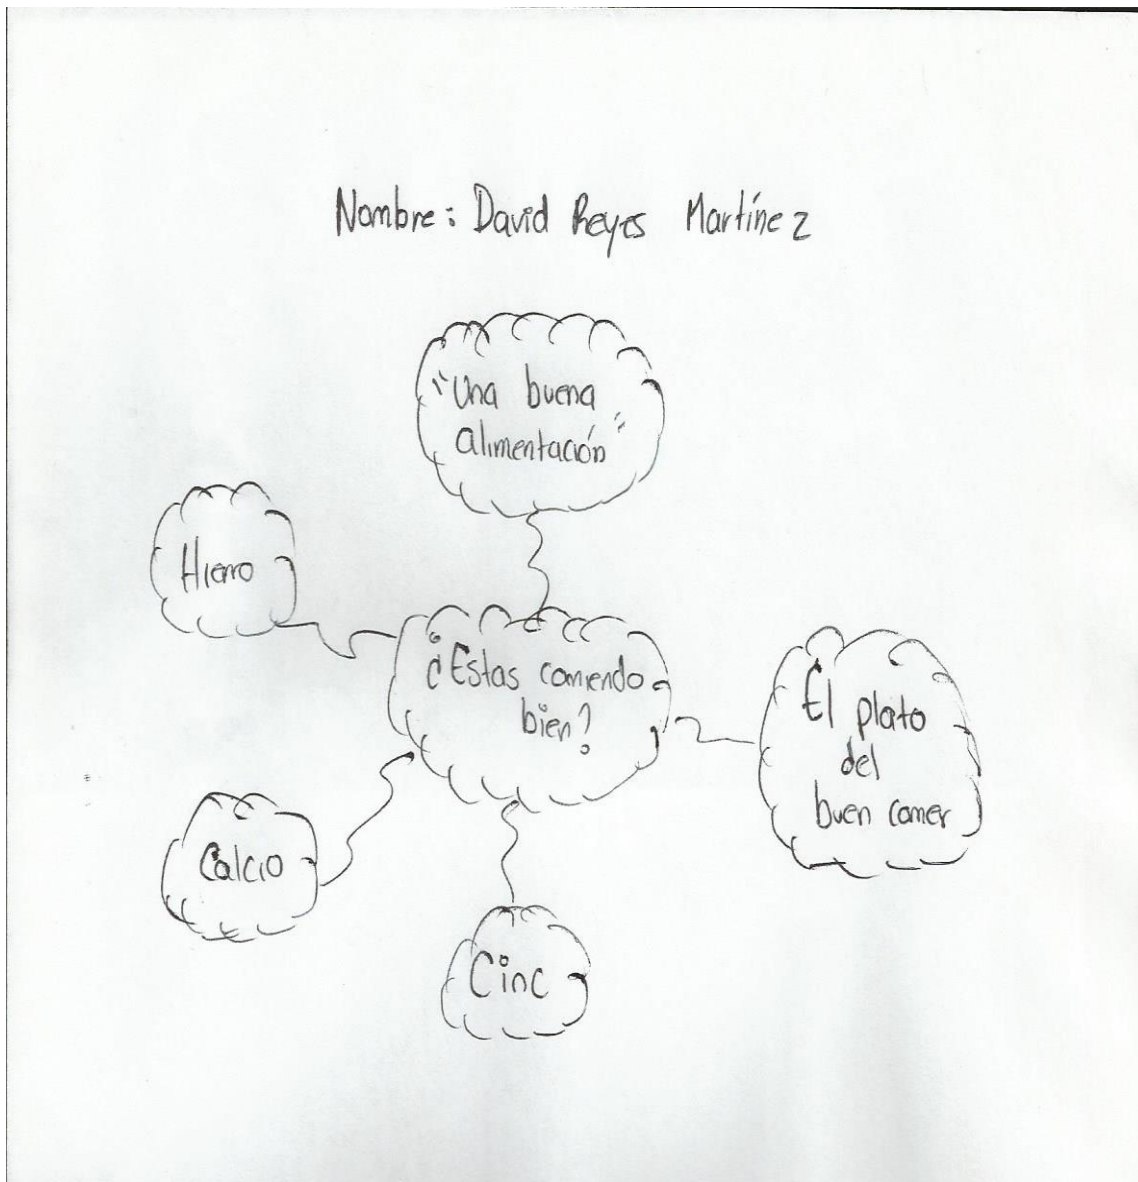 Nombre: David Reyes Martínez
"Una buena
alimentación"
Hierro
¿Estas comiendo
bien?
El plato
del
buen comer
Calcio
Cinc